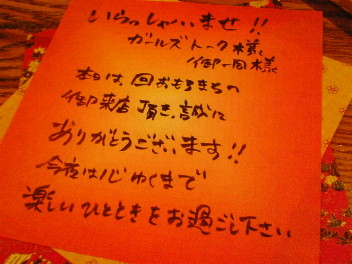 いらっしゃいませ!!
ガールズトーク様
御一同様
本日は、回おもろまちの
御来店頂き、誠に
ありがとうございます!!
今夜は心ゆくまで
楽しいひとときをお過ごし下さい